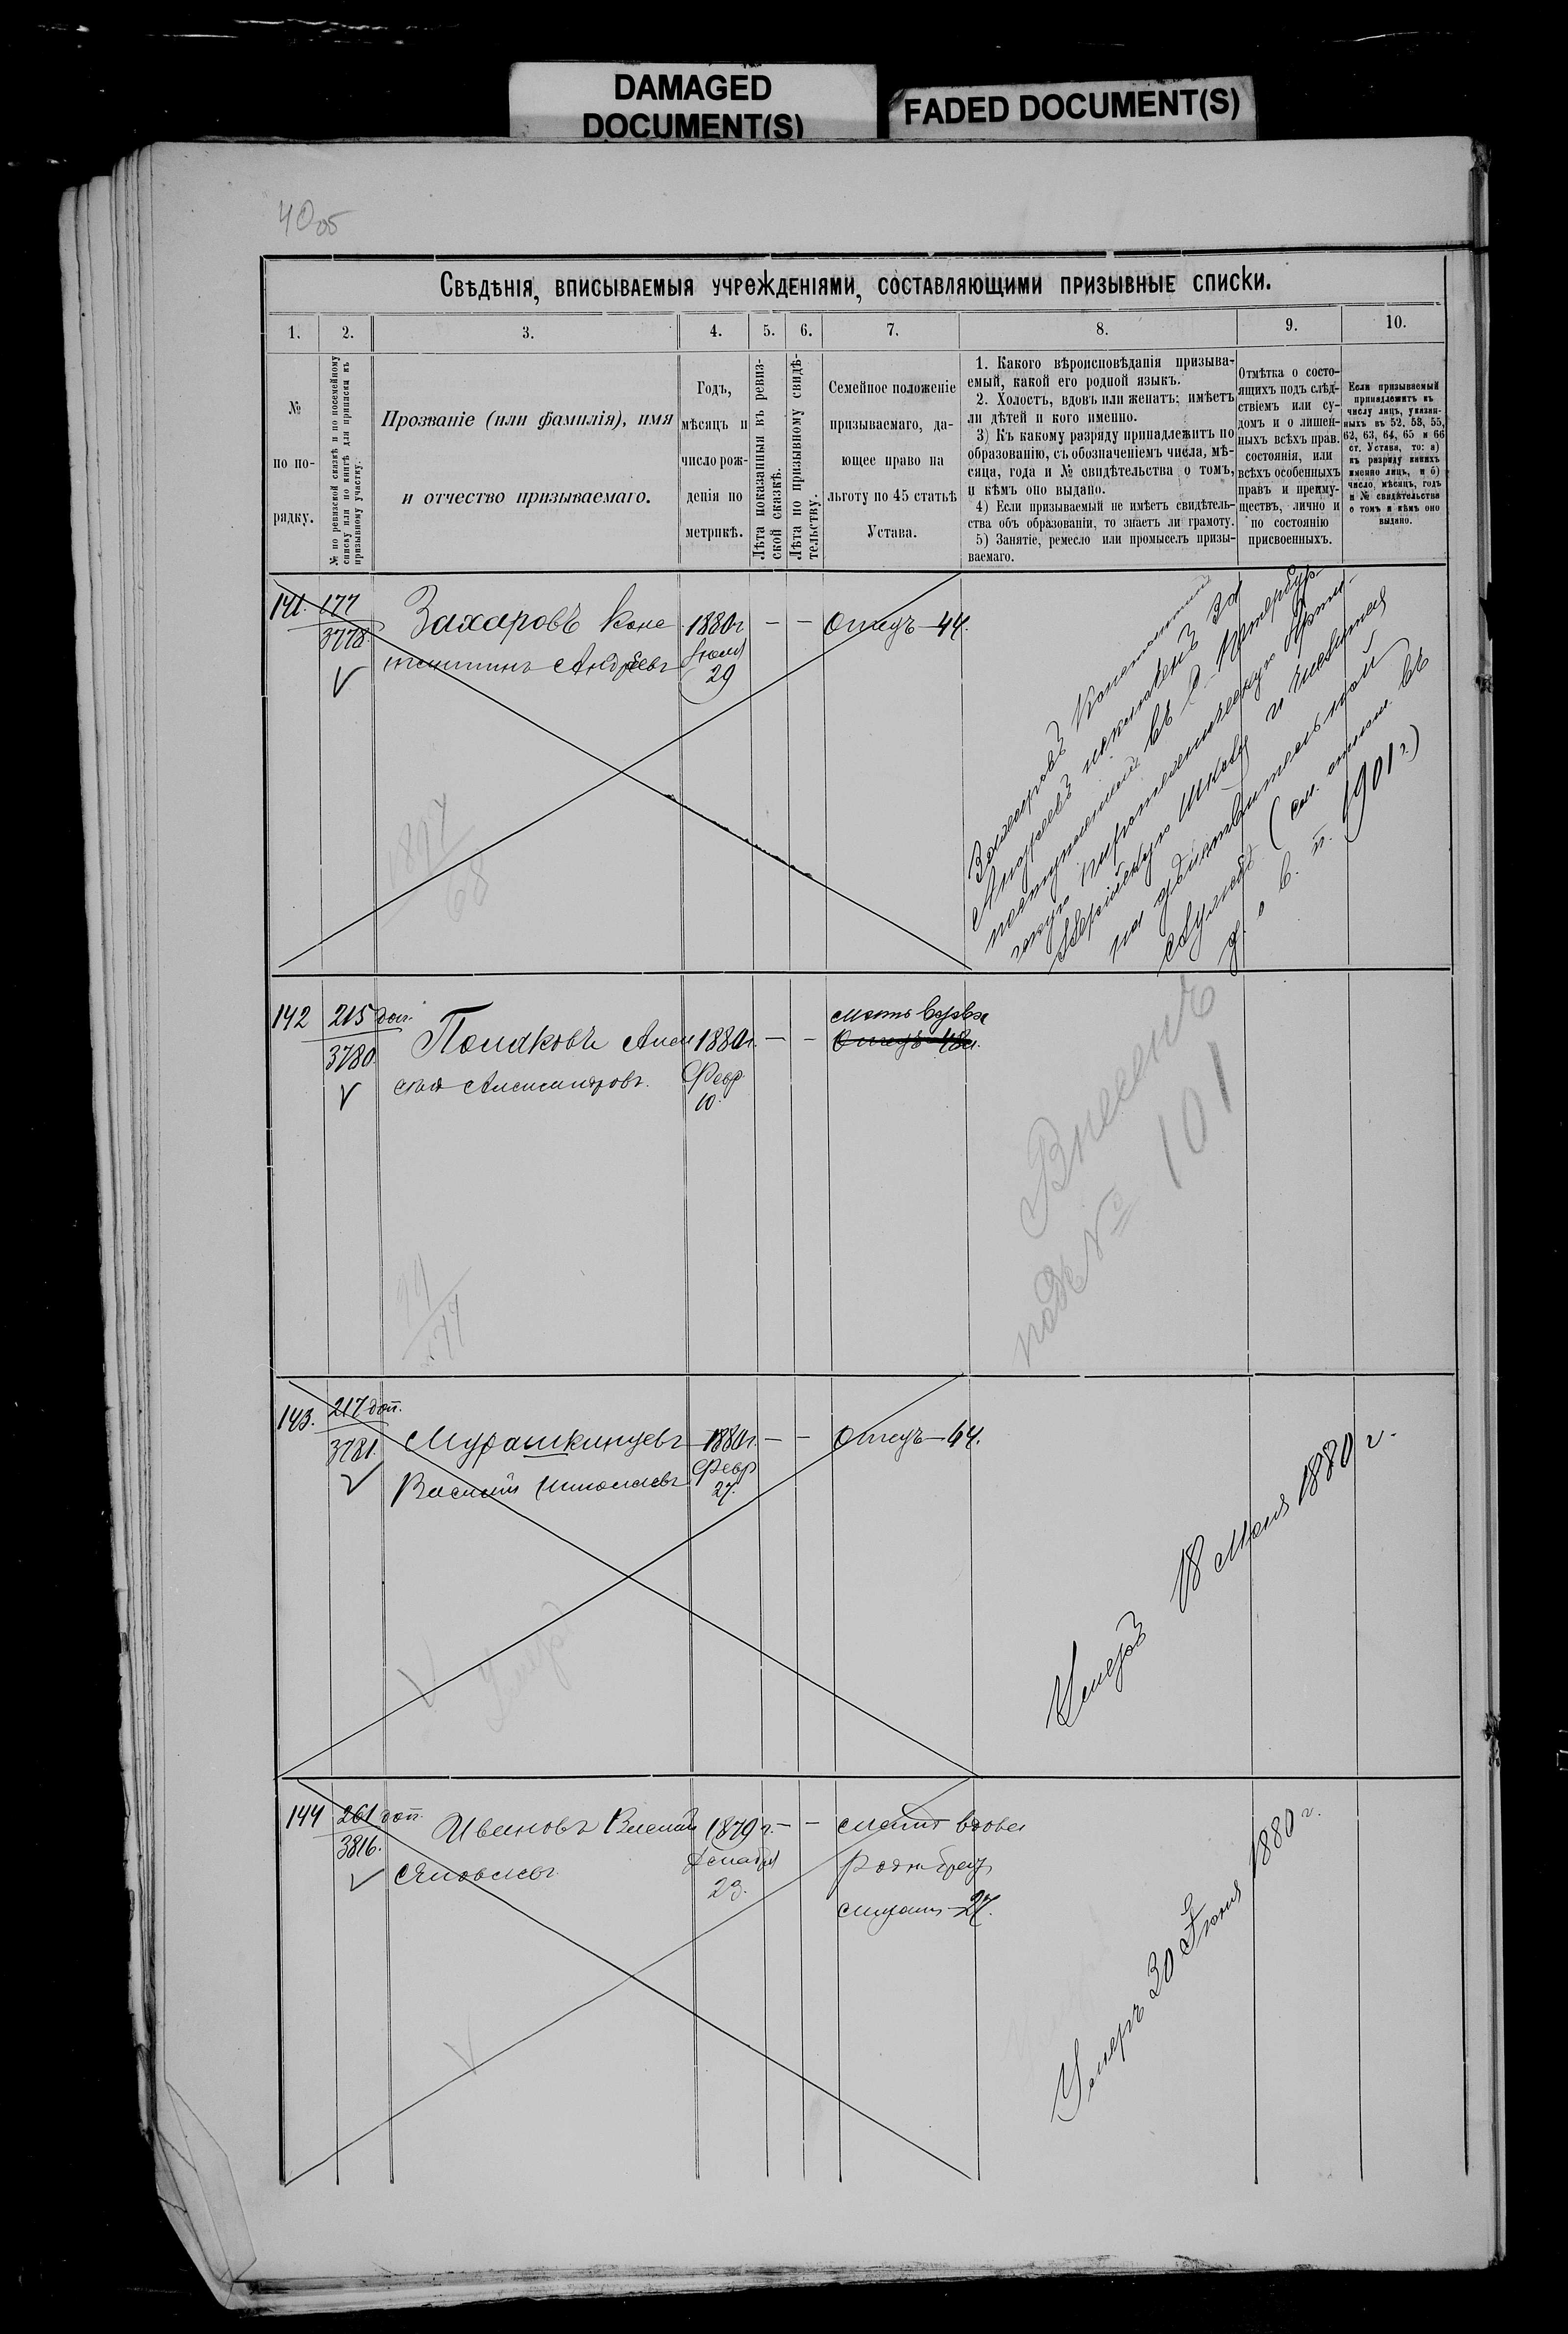 DAMAGED
DOCUMENT(S)
FADED DOCUMENT(S)
40об
Свѣдѣнія, вписываемыя учрежденіями, составляющими призывные списки.
1. 2. 3. 4. 5. 6. 7. 8. 9. 10.
№
по по-
рядку.
№ по ревизской сказкѣ и по посемейному
списку или по книгѣ для приписки къ
призывному участку.
Прозваніе (или фамилія), имя
и отчество призываемаго.
Годъ,
мѣсяцъ и
число рож-
денія по
метрикѣ.
Лѣта показанныя въ ревиз-
ской сказкѣ.
Лѣта по призывному свидѣ-
тельству.
Семейное положеніе
призываемаго, да-
ющее право на
льготу по 45 статьѣ
Устава.
1. Какого вѣроисповѣданія призыва-
емый, какой его родной языкъ.
2. Холостъ, вдовъ или женатъ; имѣетъ
ли дѣтей и кого именно.
3) Къ какому разряду принадлежитъ по
образованію, съ обозначеніемъ числа, мѣ-
сяца, года и № свидѣтельства о томъ,
и кѣмъ оно выдано.
4) Если призываемый не имѣетъ свидѣтель-
ства объ образованіи, то знаетъ ли грамоту.
5) Занятіе, ремесло или промыселъ призы-
ваемаго.
Отмѣтка о состо-
ящихъ подъ слѣд-
ствіемъ или су-
домъ и о лишен-
ныхъ всѣхъ прав.
состоянія, или
всѣхъ особенныхъ
правъ и преиму-
ществъ, лично и
по состоянію
присвоенныхъ.
Если призываемый
принадлежитъ къ
числу лицъ, указан-
ныхъ въ 52, 53, 55,
62, 63, 64, 65 и 66
ст. Устава, то: а)
къ разряду какихъ
именно лицъ, и б)
число, мѣсяцъ, годъ
и № свидѣтельства
о томъ и кѣмъ оно
выдано.
141. 177
3778.
Захаровъ Конс
тантинъ Андреевъ
1880 г
Іюля
29
— —
Отецъ—44.
Захаровъ Константинъ
Андреевъ исключенъ за
поступленіемъ въ С.-Петербур-
скую пиротехническую Арти-
лерійскую школу и числится
на дѣйствительной
службѣ (см. отнош. въ
д. о в. п. 1901 г.)
142 215 доп.
3780.
Поляковъ Алек
сѣй Александровъ.
1880 г.
Февр.
10.
— —
мать вдова
Внесенъ
подъ № 101
143. 217 доп.
3781.
Мурашкинцевъ
Василій Николаевъ
1880 г.
Февр
27.
— —
Отецъ—44.
Умеръ 18 Мая 1880 г.
Умеръ
144 261 доп.
3816.
Ивановъ Василій
Яковлевъ
1879 г.
Декабря
23.
— —
мать вдова
27.
Умеръ 30 Іюня 1880 г.